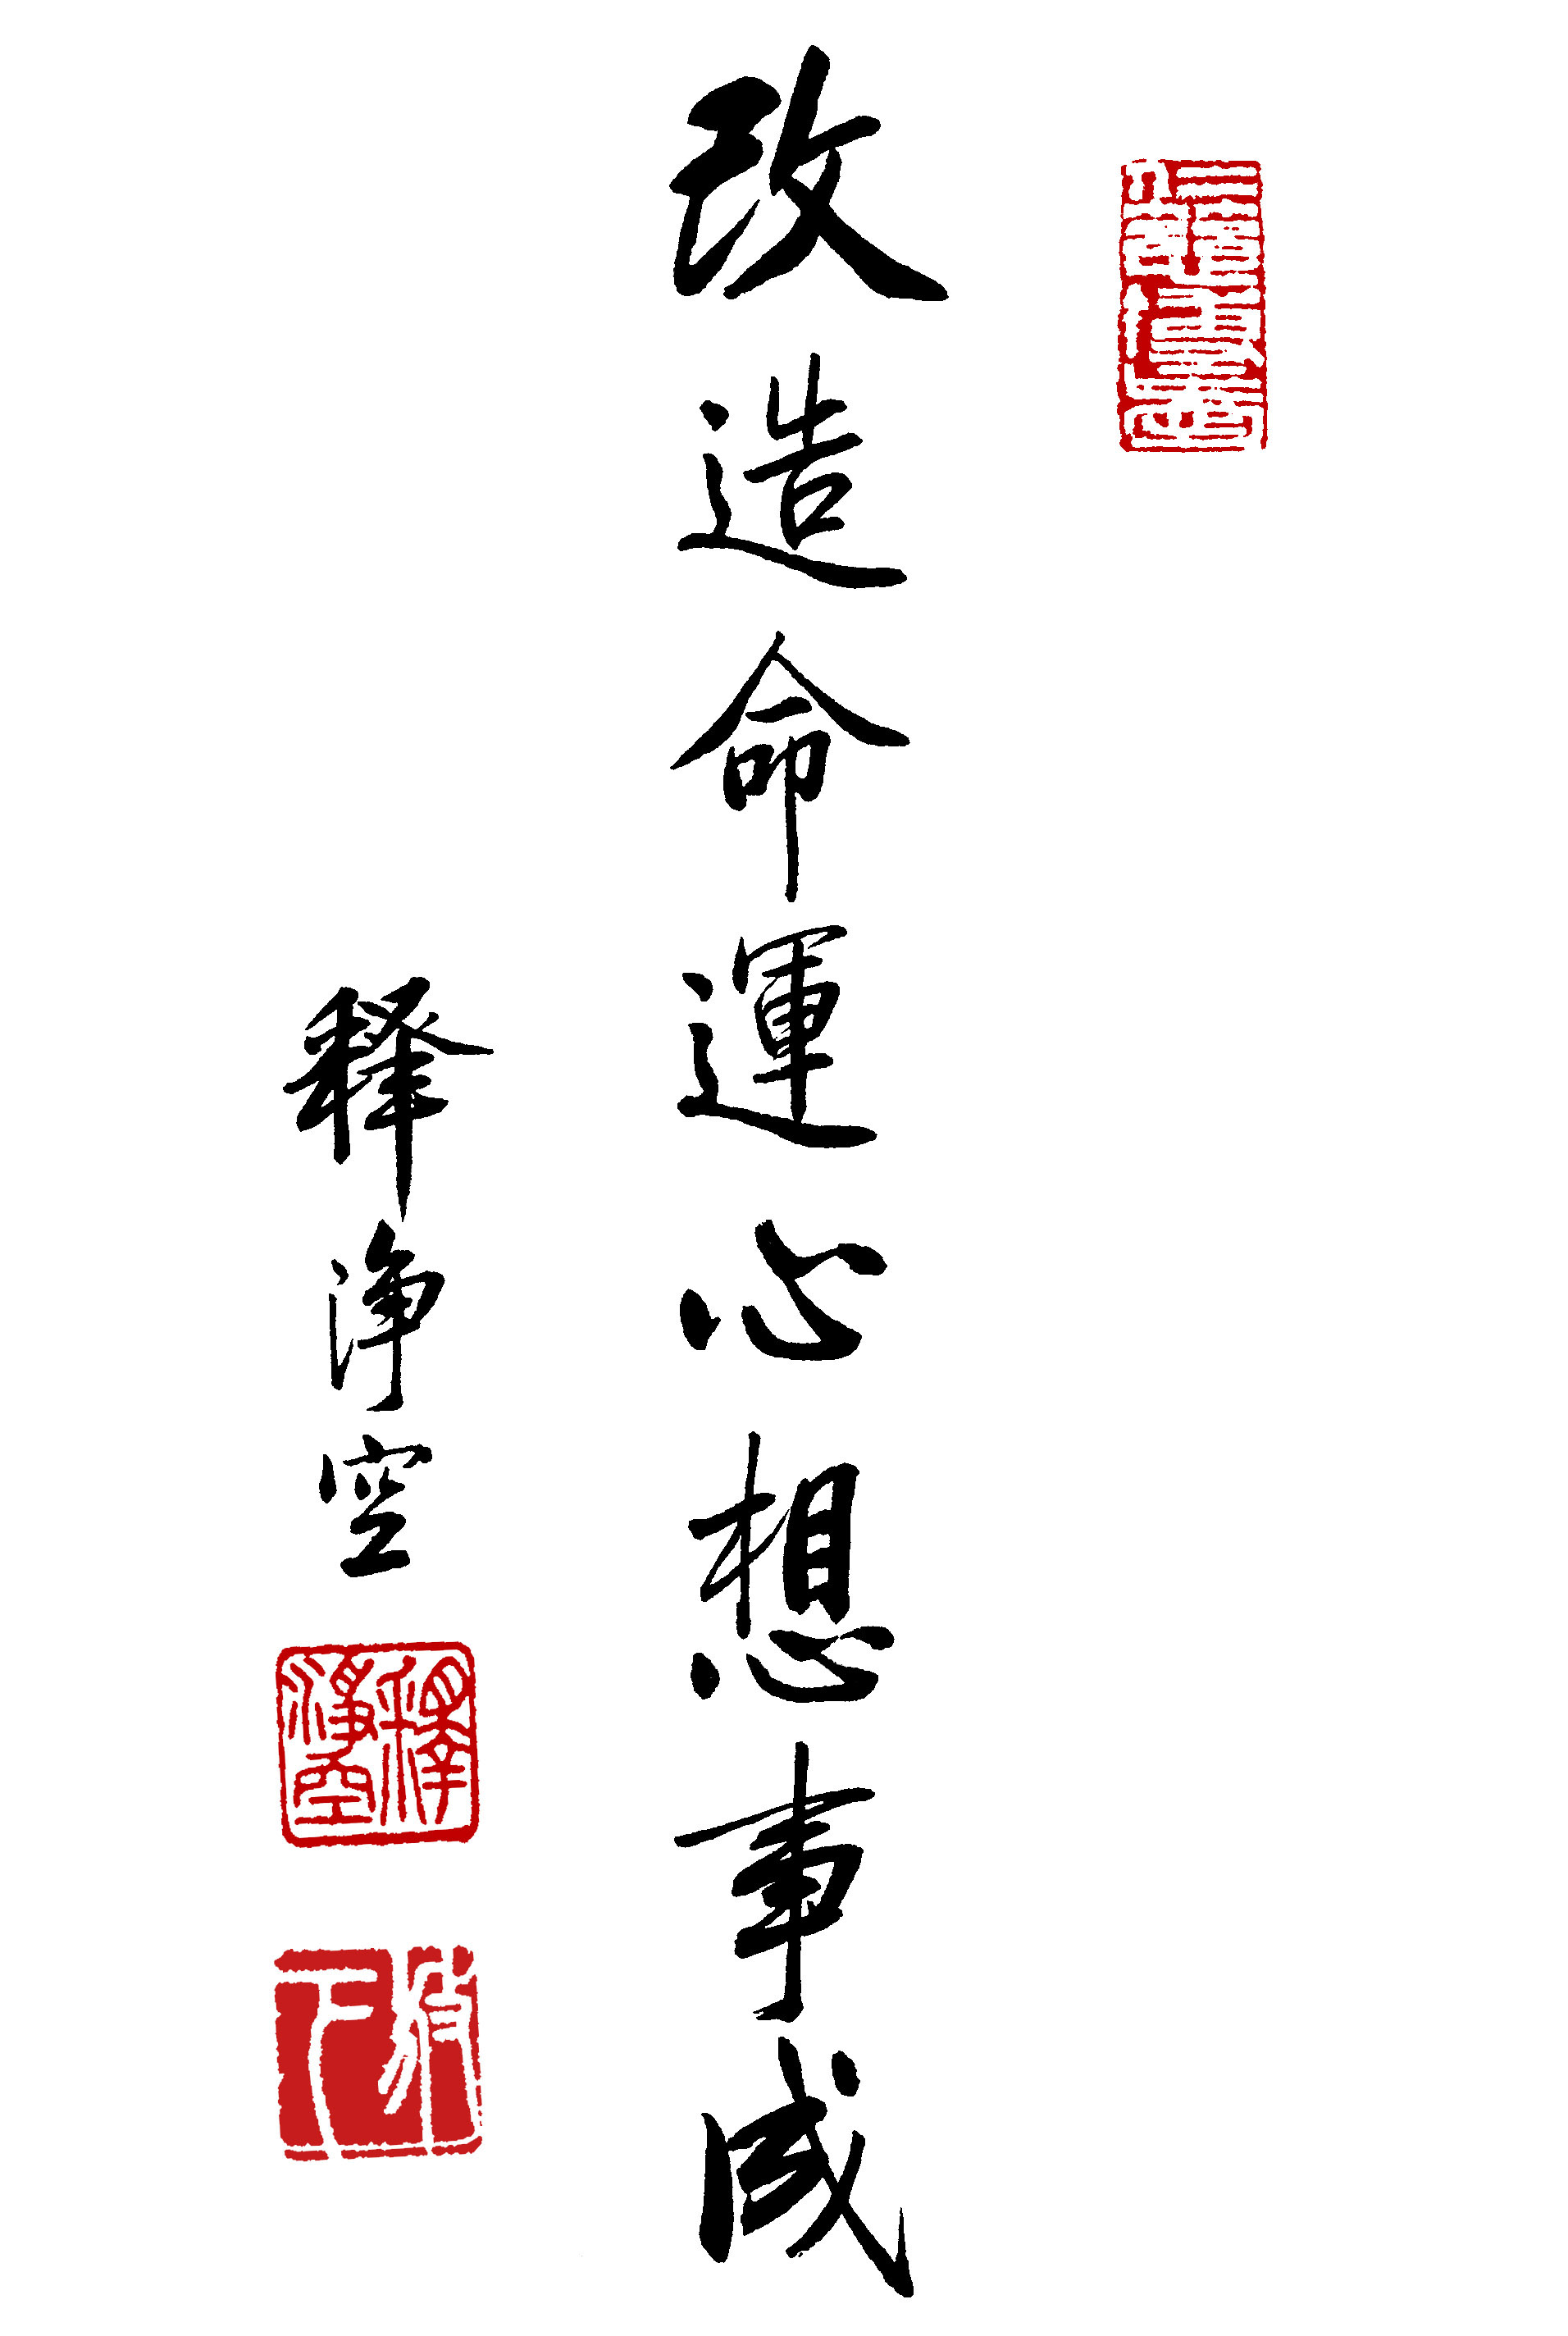 改造命運心想事成
釋淨空
釋淨空